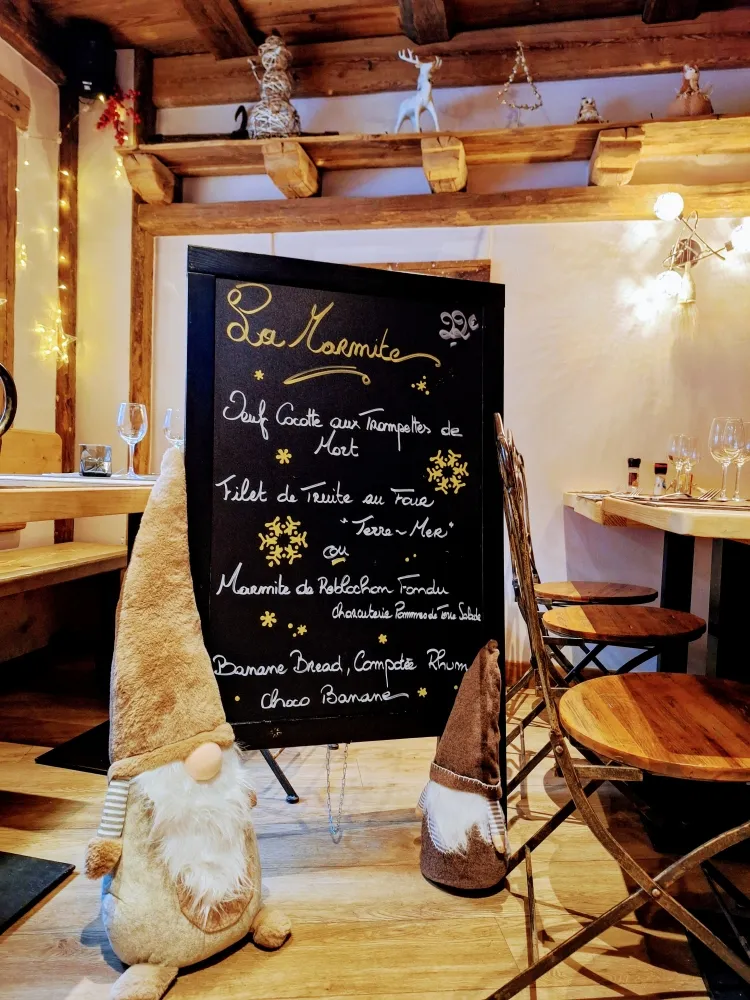 La Marmite 22€
Oeuf Cocotte aux Trompettes de
Mort
Filet de Truite au Four
"Terre-Mer"
ou
Marmite de Reblochon Fondu
Charcuterie Pommes de Terre Salade
Banane Bread, Compotée Rhum
Choco Banane